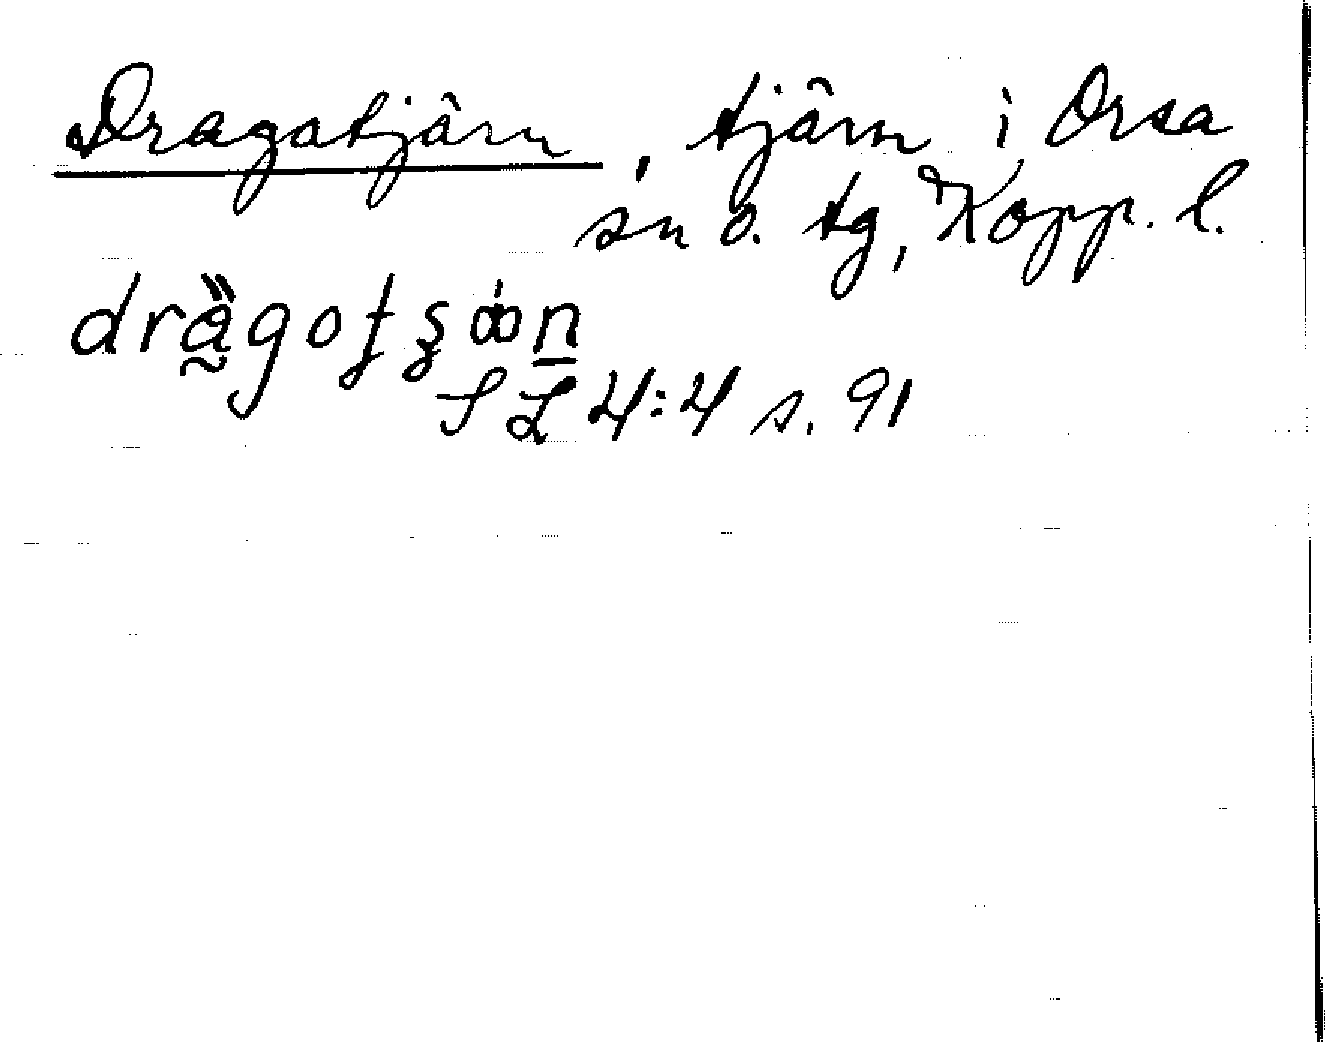 Dragatjärn, tjärn i Orsa
sn o. tg, Kopp. l.
SL 4:4 s. 91